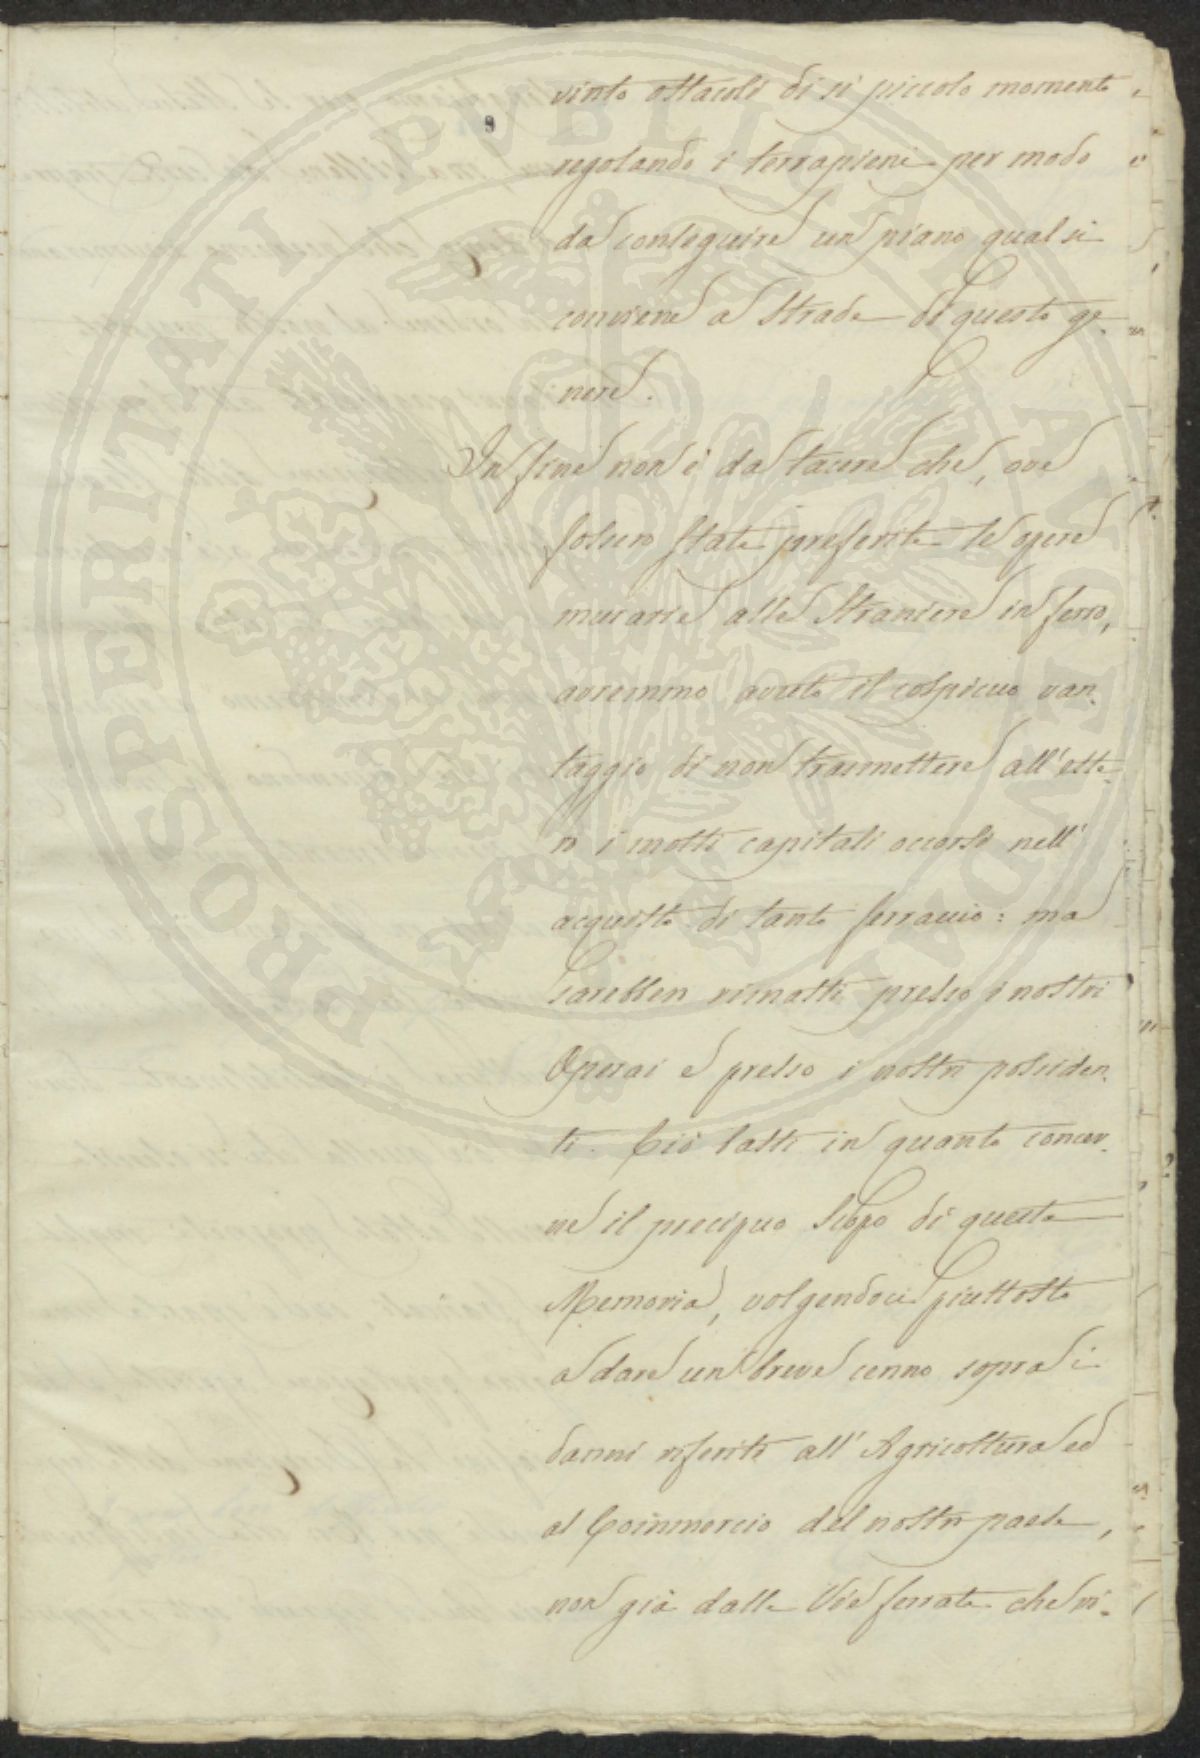 vinto ostacoli di sì piccolo momento
regolando i terrapieni per modo
da conseguire un piano qual si
conviene a Strade di questo ge-
nere.
In fine non è da tacere che, ove
fossero state preferite le opere
murarie alle Straniere in ferro,
avremmo avuto il cospicuo van-
taggio di non trasmettere all'este-
ro i molti capitali occorsi nell'
acquisto di tanto ferraccio: ma
sarebben rimasti presso i nostri
Operai e presso i nostri possiden-
ti. Ciò basti in quanto concer-
ne il precipuo Scopo di questa
Memoria, volgendoci piuttosto
a dare un breve cenno sopra i
danni riferiti all'Agricoltura ed
al Commercio del nostro paese,
non già dalle Vie ferrate che vi-
PROSPERITATI PVBLICAE AVGENDAE